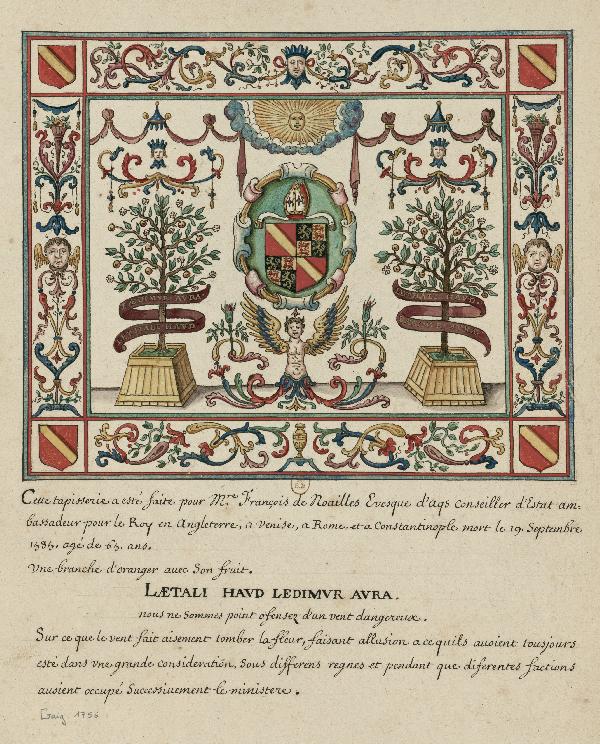 LEDIMVR AVRA
LÆTALI HAVD
Cette tapisserie a esté faite pour M.re François de Noailles Evesque d'aqs conseiller d'Estat am-
bassadeur pour le Roy en Angleterre, a Venise, a Rome, et a Constantinople mort le 19. Septembre
1585. agé de 65. ans.
Vne branche d'oranger avec Son fruit.
LÆTALI HAVD LEDIMVR AVRA.
nous ne Sommes point ofensez d'un vent dangereux.
Sur ce que le vent fait aisement tomber la fleur, faisant allusion a ce quils avoient tousjours
esté dans vne grande consideration, Sous differens regnes et pendant que diferentes factions
avoient occupé Successivement le ministere.
Gaig 1756